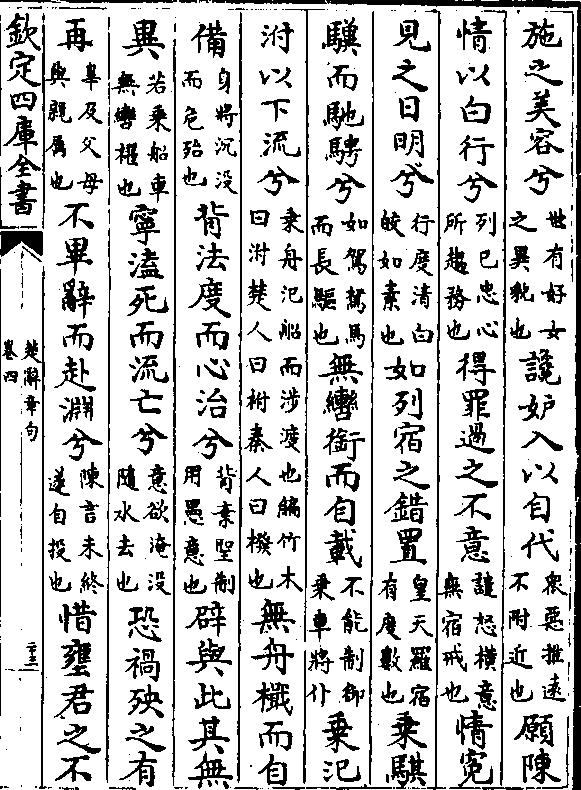 施之美容兮世有好女之異貌也讒妒入以自代衆惡推遠不附近也願陳
情以白行兮列己忠心所趨務也得罪過之不意譴怒橫意無宿戒也情寃
見之日明兮行度清白皎如素也如列宿之錯置皇天羅宿有度數也乗騏
驥而馳騁兮如駕駑馬而長驅也無轡銜而自載不能制御乗車將仆乗氾
泭以下流兮乗舟氾船而涉渡也編竹木曰泭楚人曰柎秦人曰橃也無舟檝而自
備身將沉没而危殆也背法度而心治兮背棄聖制用愚意也辟與此其無
異若乗船車無轡櫂也寧溘死而流亡兮意欲淹没隨水去也恐禍殃之有
再辠及父母與親屬也不畢辭而赴淵兮陳言未終遂自投也惜壅君之不
欽定四庫全書
楚辭章句
卷四
二十三